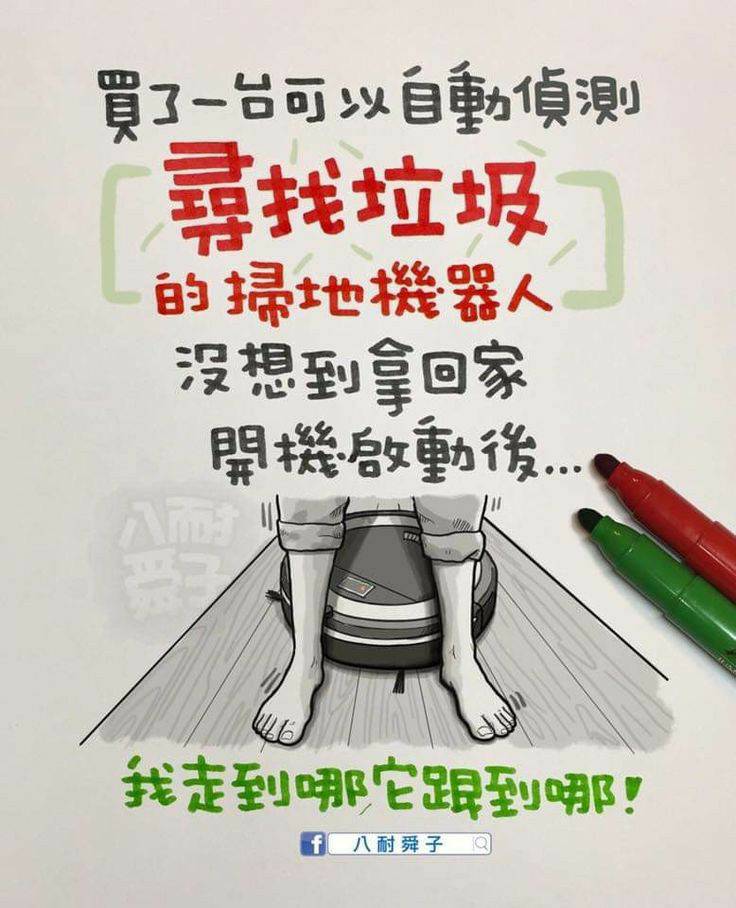 買了一台可以自動偵測
尋找垃圾
的掃地機器人
沒想到拿回家
開機啟動後...
八耐
舜子
我走到哪它跟到哪!
f 八耐舜子